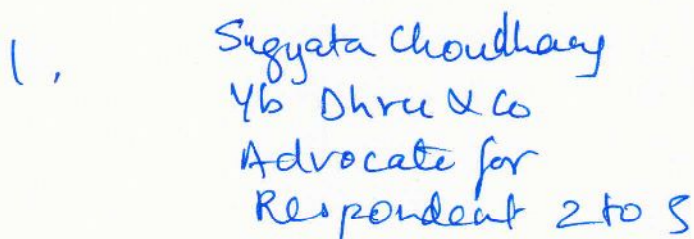 1, Sugyata Choudhary
Yb Dhru & Co
Advocate for
Respondent 2 to 5